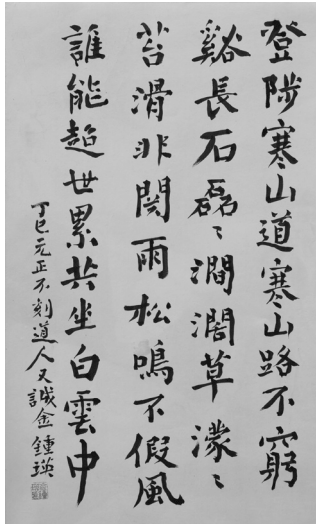 登陟寒山道寒山路不窮
谿長石磊〻澗濶草濛〻
苔滑非関雨松鳴不假風
誰能超世累共坐白雲中
丁巳元正不刻道人又誠金鍾瑛